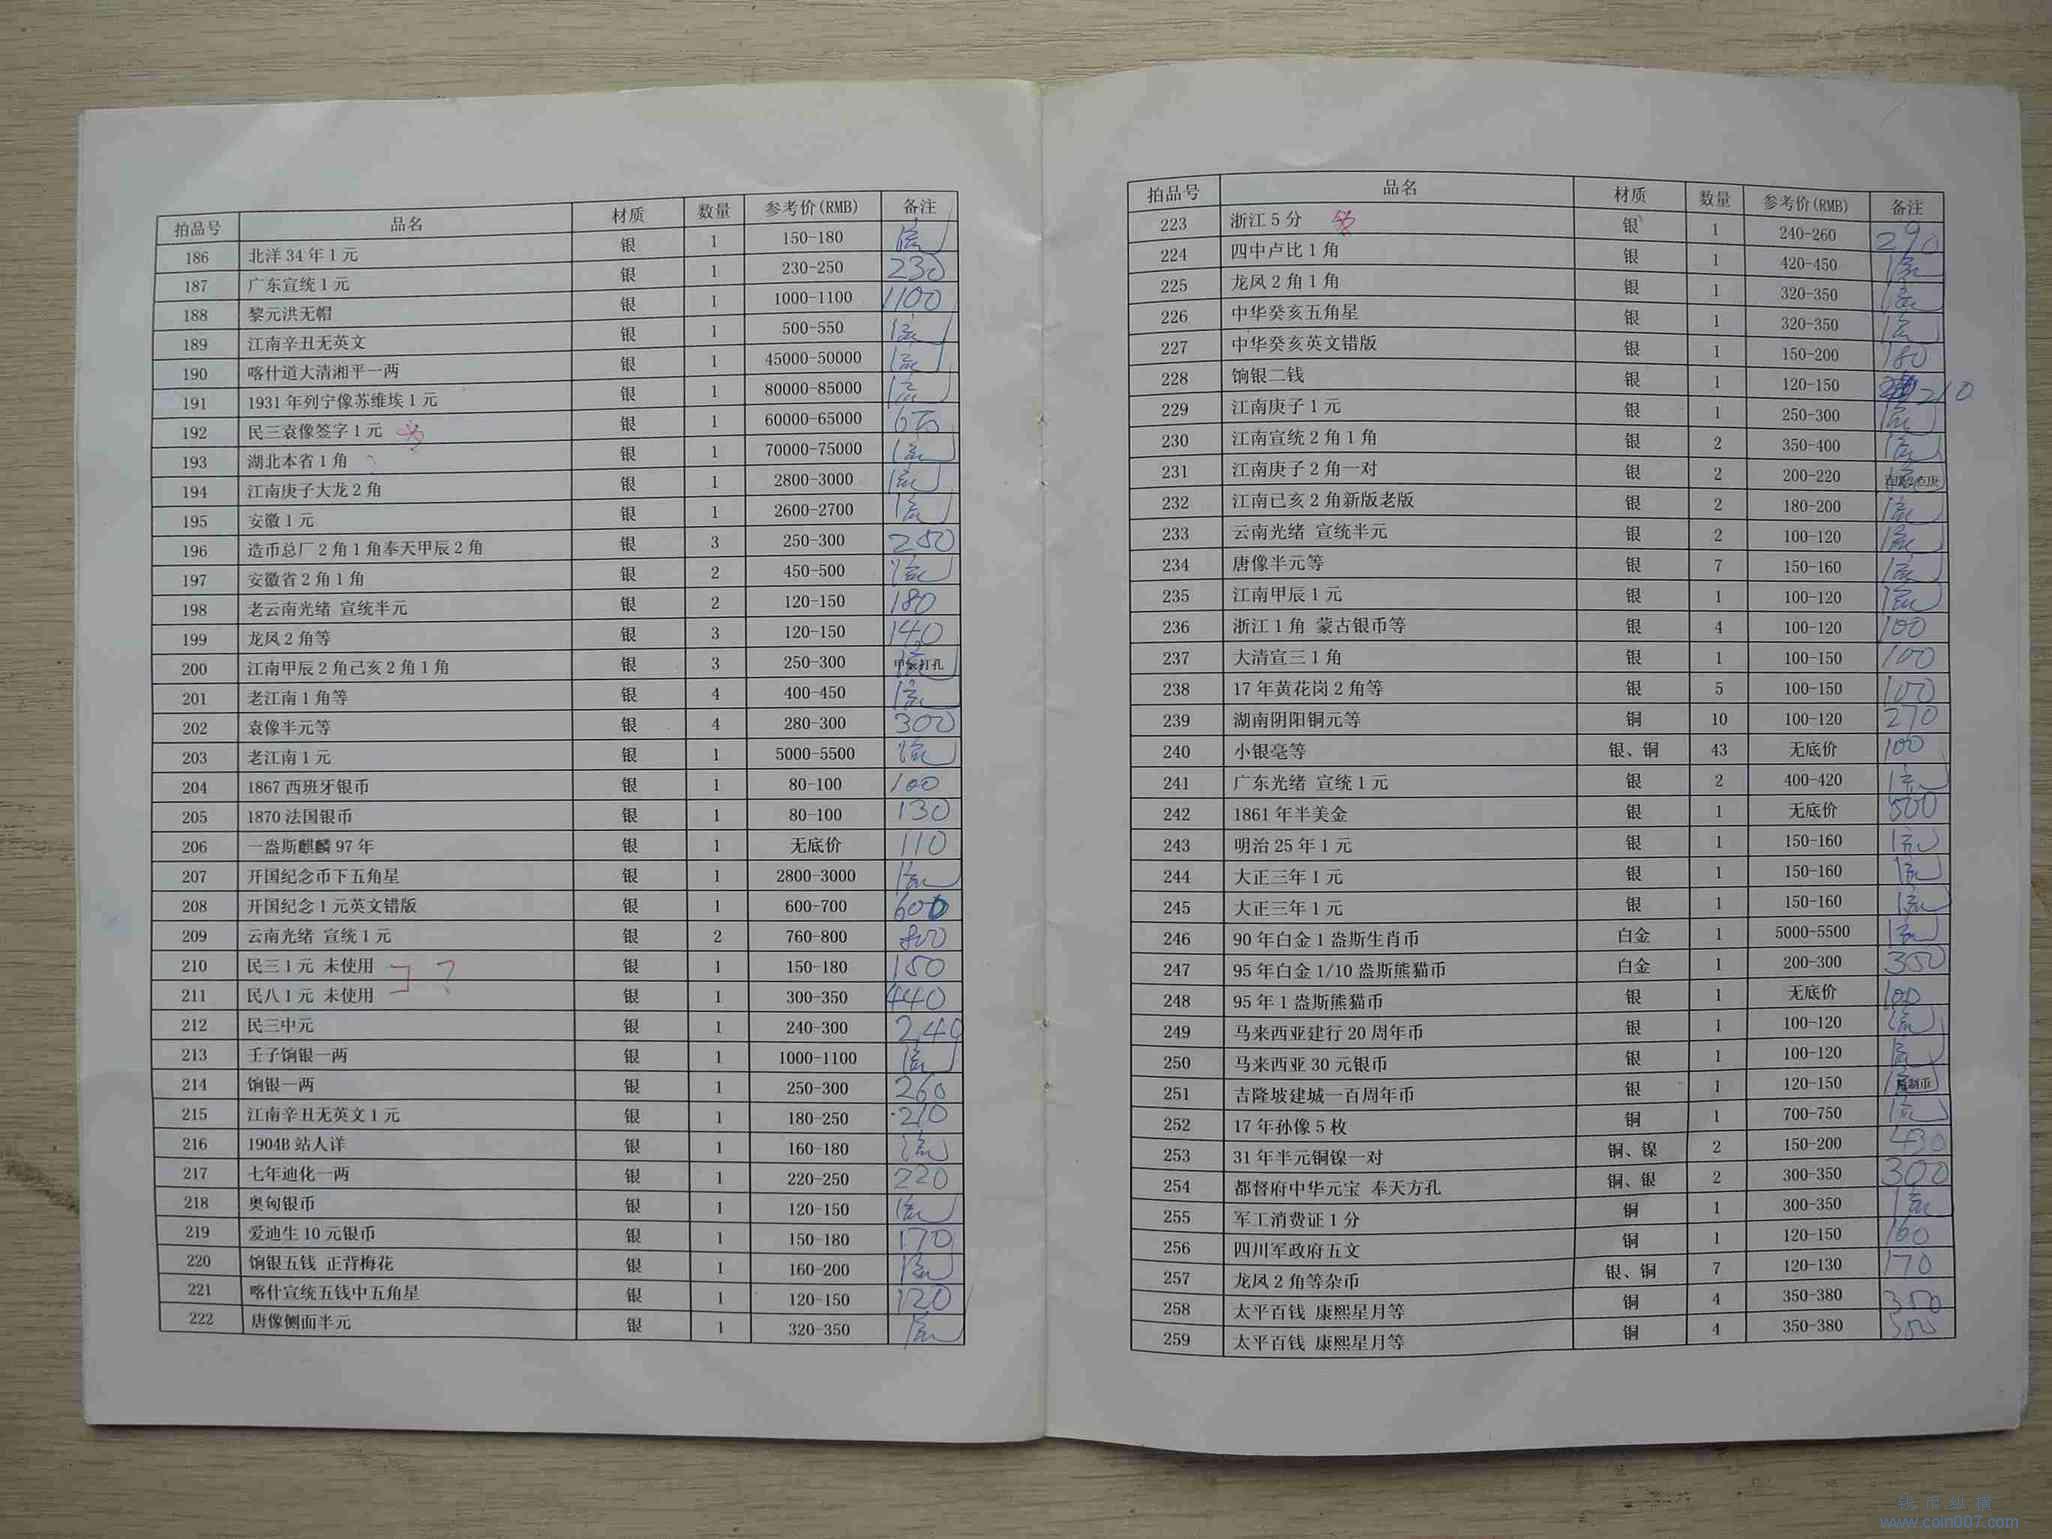 拍品号 品名 材质 数量 参考价(RMB) 备注
186 北洋34年1元 银 1 150-180 流
187 广东宣统1元 银 1 230-250 230
188 黎元洪无帽 银 1 1000-1100 1100
189 江南辛丑无英文 银 1 500-550 流
190 喀什道大清湘平一两 银 1 45000-50000 流
191 1931年列宁像苏维埃1元 银 1 80000-85000 流
192 民三袁像签字1元 银 1 60000-65000 6万
193 湖北本省1角 银 1 70000-75000 流
194 江南庚子大龙2角 银 1 2800-3000 流
195 安徽1元 银 1 2600-2700 流
196 造币总厂2角1角奉天甲辰2角 银 3 250-300 250
197 安徽省2角1角 银 2 450-500 流
198 老云南光绪 宣统半元 银 2 120-150 180
199 龙凤2角等 银 3 120-150 140
200 江南甲辰2角己亥2角1角 银 3 250-300 甲辰打孔 流
201 老江南1角等 银 4 400-450 流
202 袁像半元等 银 4 280-300 300
203 老江南1元 银 1 5000-5500 流
204 1867西班牙银币 银 1 80-100 100
205 1870法国银币 银 1 80-100 130
206 一盎斯麒麟97年 银 1 无底价 110
207 开国纪念币下五角星 银 1 2800-3000 流
208 开国纪念1元英文错版 银 1 600-700 600
209 云南光绪 宣统1元 银 2 760-800 800
210 民三1元 未使用 银 1 150-180 180
211 民八1元 未使用 银 1 300-350 440
212 民三中元 银 1 240-300 240
213 壬子饷银一两 银 1 1000-1100 流
214 饷银一两 银 1 250-300 260
215 江南辛丑无英文1元 银 1 180-250 210
216 1904B站人详 银 1 160-180 流
217 七年迪化一两 银 1 220-250 220
218 奥甸银币 银 1 120-150 流
219 爱迪生10元银币 银 1 150-180 170
220 饷银五钱 正背梅花 银 1 160-200 流
221 喀什宣统五钱中五角星 银 1 120-150 120
222 唐像侧面半元 银 1 320-350 流
拍品号 品名 材质 数量 参考价(RMB) 备注
223 浙江5分 银 1 240-260 290
224 四中卢比1角 银 1 420-450 流
225 龙凤2角1角 银 1 320-350 流
226 中华癸亥五角星 银 1 320-350 流
227 中华癸亥英文错版 银 1 150-200 180
228 饷银二钱 银 1 120-150 210
229 江南庚子1元 银 1 250-300 流
230 江南宣统2角1角 银 2 350-400 流
231 江南庚子2角一对 银 2 200-220
232 江南己亥2角新版老版 银 2 180-200 流
233 云南光绪 宣统半元 银 2 100-120 流
234 唐像半元等 银 7 150-160 流
235 江南甲辰1元 银 1 100-120 流
236 浙江1角 蒙古银币等 银 4 100-120 100
237 大清宣三1角 银 1 100-150 100
238 17年黄花岗2角等 银 5 100-150 100
239 湖南阴阳铜元等 铜 10 100-120 270
240 小银毫等 银、铜 43 无底价 100
241 广东光绪 宣统1元 银 2 400-420 流
242 1861年半美金 银 1 无底价 500
243 明治25年1元 银 1 150-160 流
244 大正三年1元 银 1 150-160 流
245 大正三年1元 银 1 150-160 流
246 90年白金1盎斯生肖币 白金 1 5000-5500 流
247 95年白金1/10盎斯熊猫币 白金 1 200-300 350
248 95年1盎斯熊猫币 银 1 无底价 100
249 马来西亚建行20周年币 银 1 100-120 流
250 马来西亚30元银币 银 1 100-120 流
251 吉隆坡建城一百周年币 银 1 120-150 流
252 17年孙像5枚 铜 1 700-750 流
253 31年半元铜镍一对 铜、镍 2 150-200 430
254 都督府中华元宝 奉天方孔 铜、银 2 300-350 300
255 军工消费证1分 铜 1 300-350 流
256 四川军政府五文 铜 1 120-150 160
257 龙凤2角等杂币 银、铜 7 120-130 170
258 太平百钱 康熙星月等 铜 4 350-380 350
259 太平百钱 康熙星月等 铜 4 350-380
钱币纵横
www.coin007.com